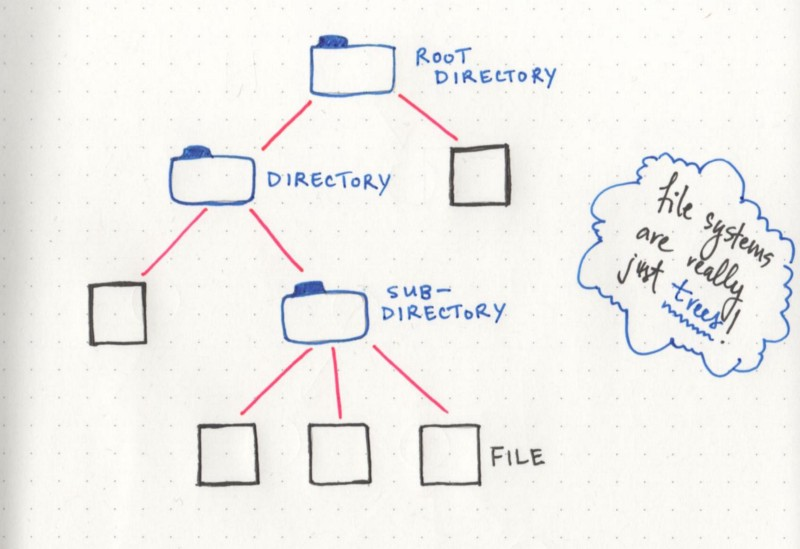 ROOT
DIRECTORY
DIRECTORY
SUB-
DIRECTORY
FILE
file systems
are really
just trees!!